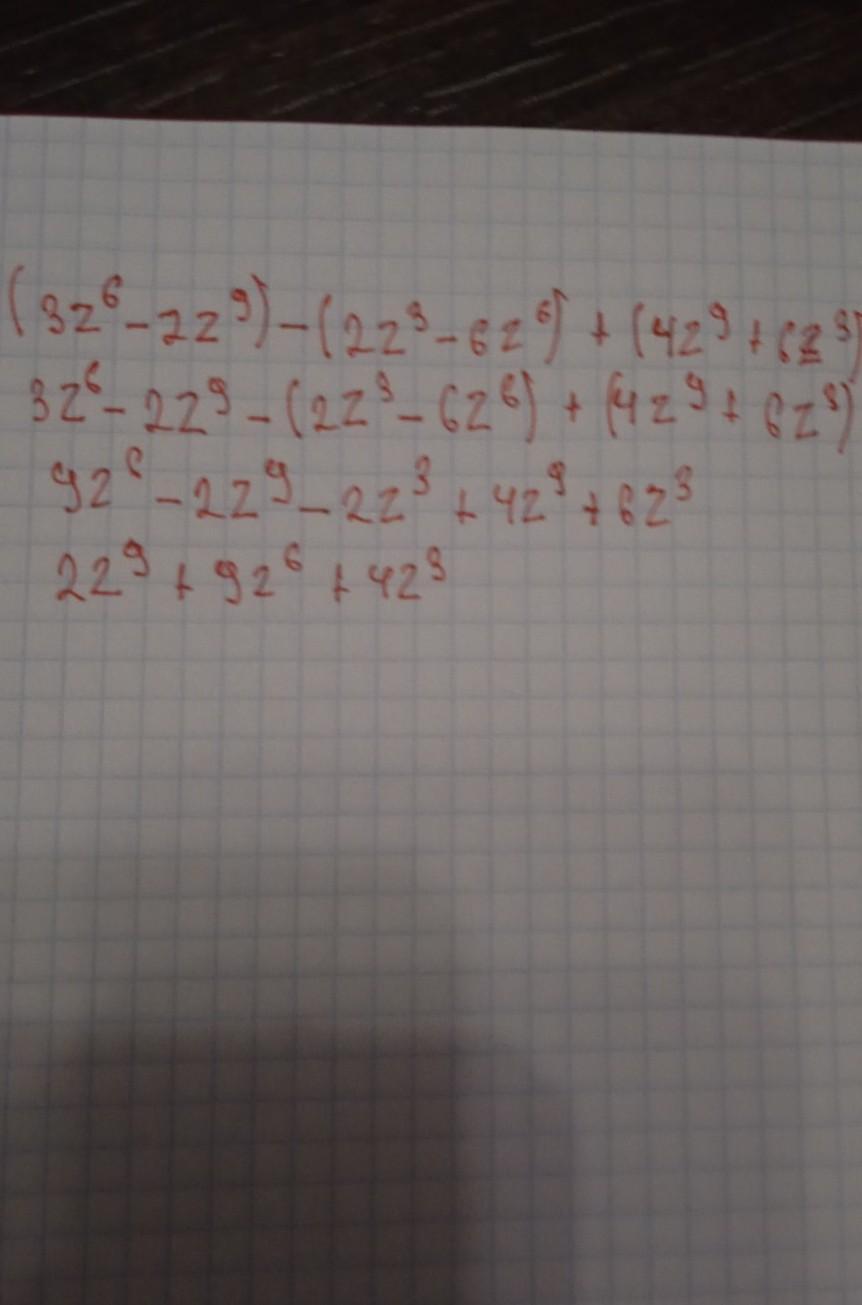 (3z⁶-2z⁹)-(2z³-6z⁶)+(4z⁹+6z³)
3z⁶-2z⁹-(2z³-6z⁶)+(4z⁹+6z³)
9z⁶-2z⁹-2z³+4z⁹+6z³
2z⁹+9z⁶+4z³